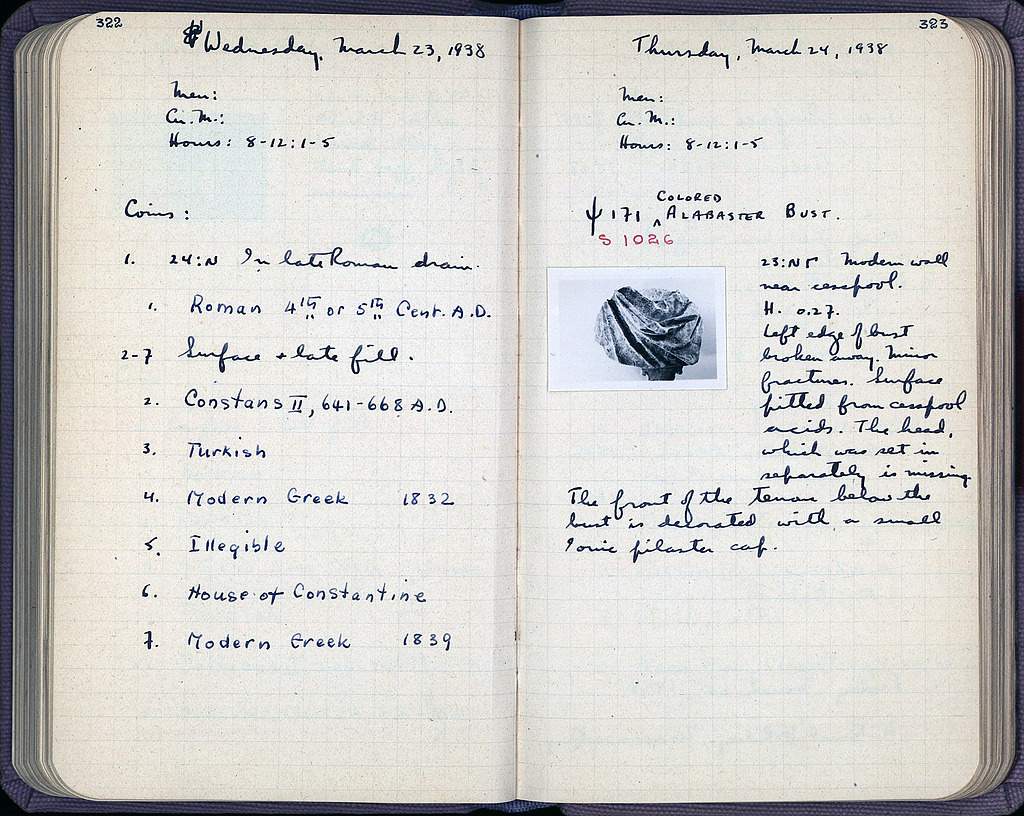 322
Wednesday, March 23, 1938
Men:
Cu. M.:
Hours: 8-12:1-5
Coins:
1. 24:N In late Roman drain.
1. Roman 4th or 5th Cent. A.D.
2-7 Surface + late fill.
2. Constans II, 641-668 A.D.
3. Turkish
4. Modern Greek 1832
5. Illegible
6. House of Constantine
7. Modern Greek 1839
323
Thursday, March 24, 1938
Men:
Cu. M.:
Hours: 8-12:1-5
COLORED
ψ 171 ^ ALABASTER BUST.
S 1026
23:NΓ Modern wall
near cesspool.
H. 0.27.
Left edge of bust
broken away. Minor
fractures. Surface
pitted from cesspool
acids. The head,
which was set in
separately is missing
The front of the tenon below the
bust is decorated with a small
Ionic pilaster cap.